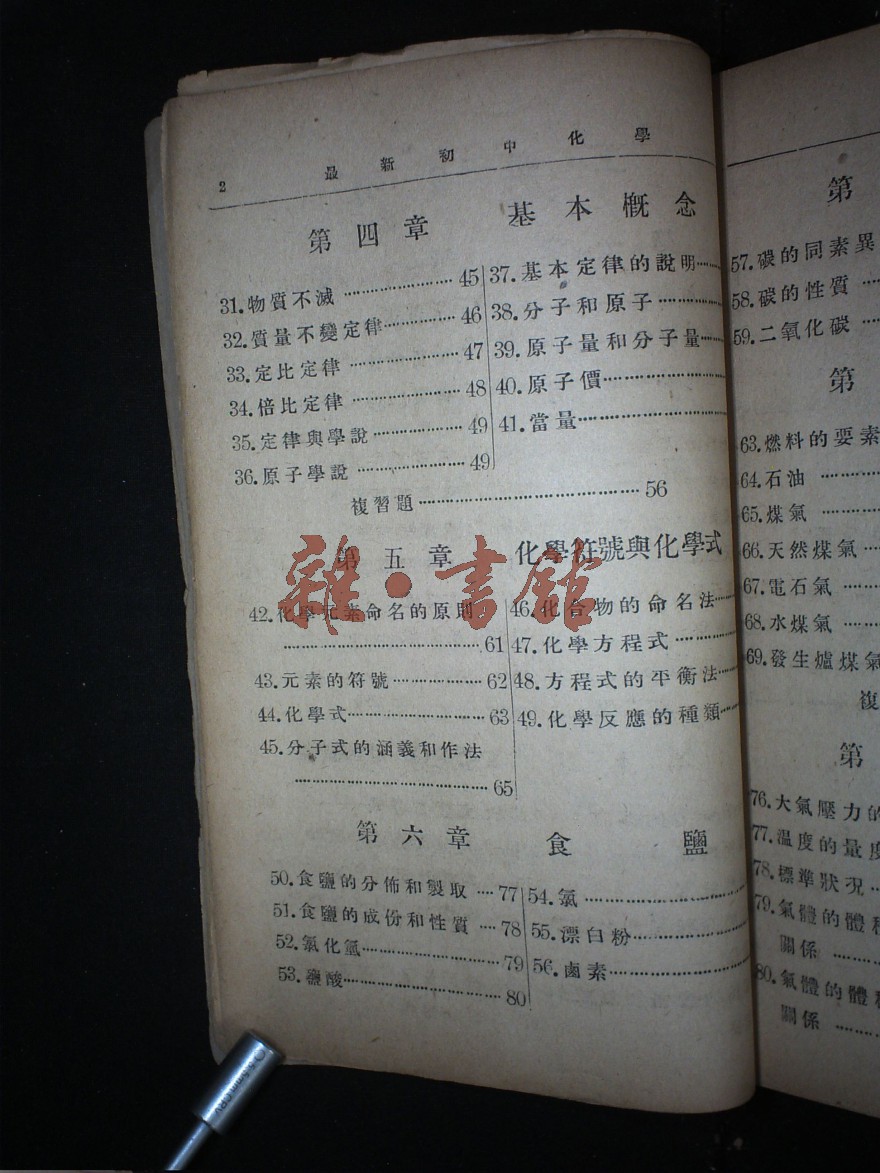 2 最新初中化學
第四章 基本概念
31.物質不滅 ⋯⋯ 45
32.質量不變定律⋯⋯ 46
33.定比定律 ⋯⋯ 47
34.倍比定律 ⋯⋯ 48
35.定律與學說⋯⋯ 49
36.原子學說 ⋯⋯ 49
37.基本定律的說明⋯⋯
38.分子和原子⋯⋯
39.原子量和分子量⋯⋯
40.原子價⋯⋯
41.當量⋯⋯
複習題⋯⋯ 56
第五章 化學符號與化學式
42.化學元素命名的原則
⋯⋯61
43.元素的符號⋯⋯ 62
44.化學式⋯⋯ 63
45.分子式的涵義和作法
⋯⋯ 65
46.化合物的命名法⋯⋯
47.化學方程式⋯⋯
48.方程式的平衡法⋯⋯
49.化學反應的種類⋯⋯
第六章 食鹽
50.食鹽的分佈和製取 ⋯⋯ 77
51.食鹽的成份和性質 ⋯⋯ 78
52.氯化氫⋯⋯ 79
53.鹽酸⋯⋯ 80
54.氯⋯⋯
55.漂白粉⋯⋯
56.鹵素⋯⋯
第
57.碳的同素異
58.碳的性質 ⋯⋯
59.二氧化碳 ⋯⋯
第
63.燃料的要素
64.石油 ⋯⋯
65.煤氣 ⋯⋯
66.天然煤氣⋯⋯
67.電石氣⋯⋯
68.水煤氣 ⋯⋯
69.發生爐煤氣
複
第
76.大氣壓力的
77.温度的量度
78.標準狀况⋯⋯
79.氣體的體積
關係 ⋯⋯
80.氣體的體積
關係 ⋯⋯
雜·書館